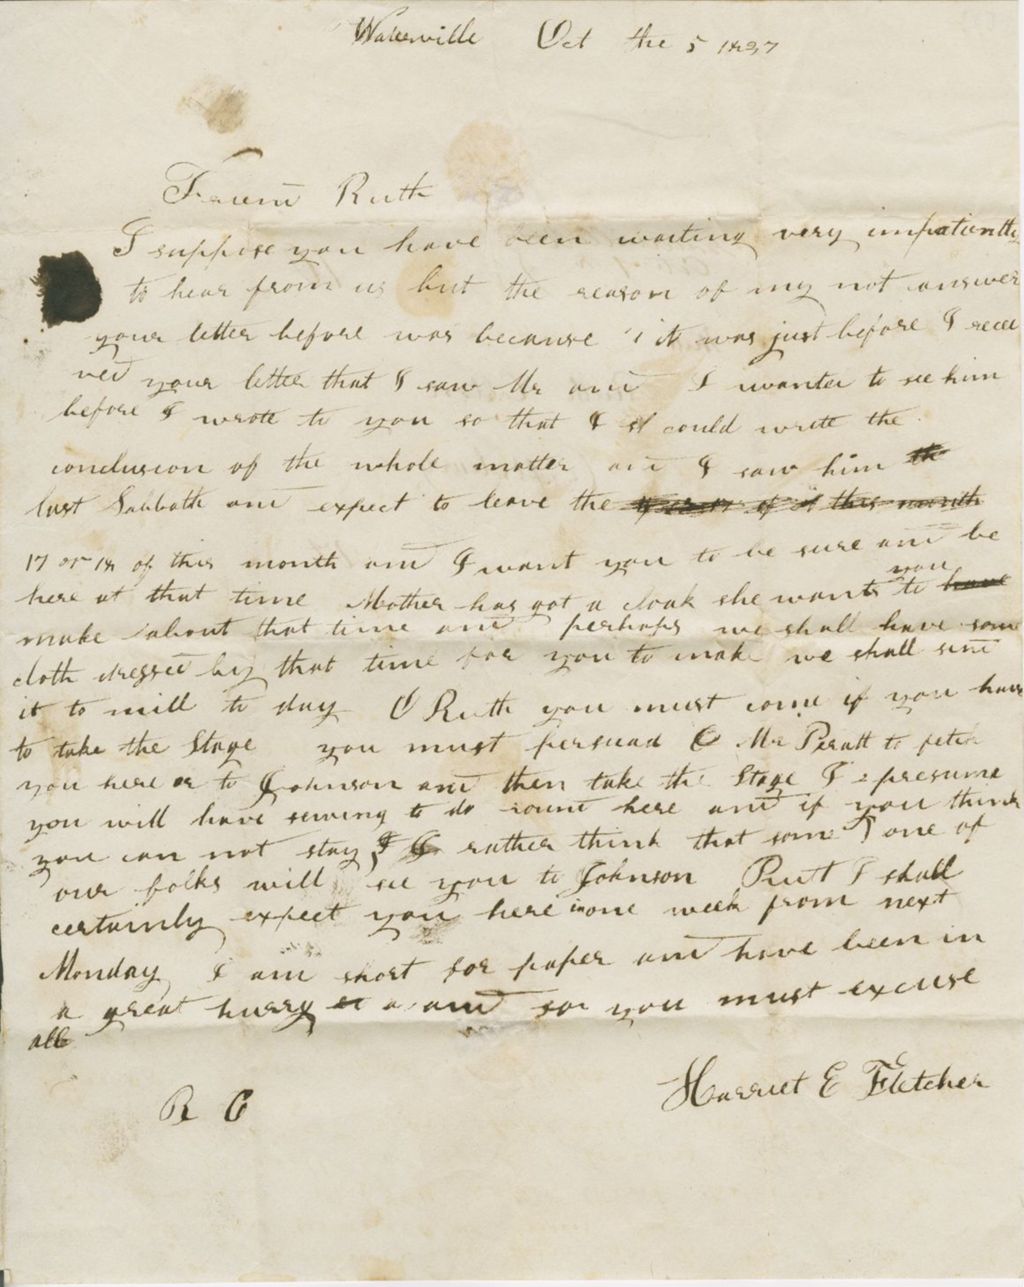 Waterville Oct the 5 1837
Friend Ruth
I suppose you have been waiting very impatiently
to hear from us but the reason of my not answer
your letter before was because it was just before I recei
ved your letter that I saw Mr and I wanted to see him
before I wrote to you so that I could write the
conclusion of the whole matter and I saw him the
last Sabbath and expect to leave the
17 or 18 of this month and I want you to be sure and be
here at that time Mother has got a cloak she wants you to have
make about that time and perhaps we shall have some
cloth dressed by that time for you to make we shall send
it to mill to day O Ruth you must come if you have
to take the Stage you must persuad Mr Peratt to fetch
you here or to Johnson and then take the Stage I presume
you will have sewing to do round here and if you think
you can not stay I rather think that some one of
our folks will see you to Johnson Rut I shall
certainly expect you here in one week from next
Monday I am short for paper and have been in
a great hurry and so you must excuse
all
Harriet E Fletcher
R C